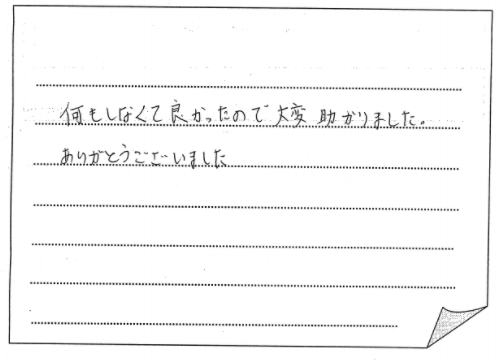 何もしなくて良かったので大変助かりました。
ありがとうございました